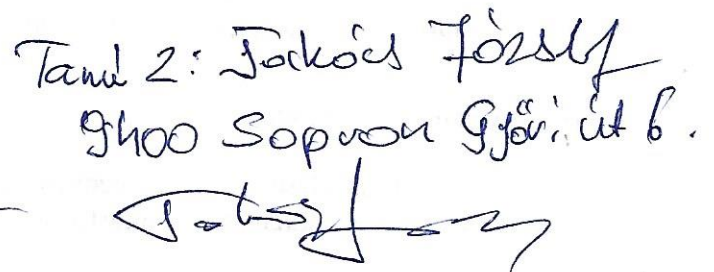 Tanú 2: Takács József
9400 Sopron Győri út 6.